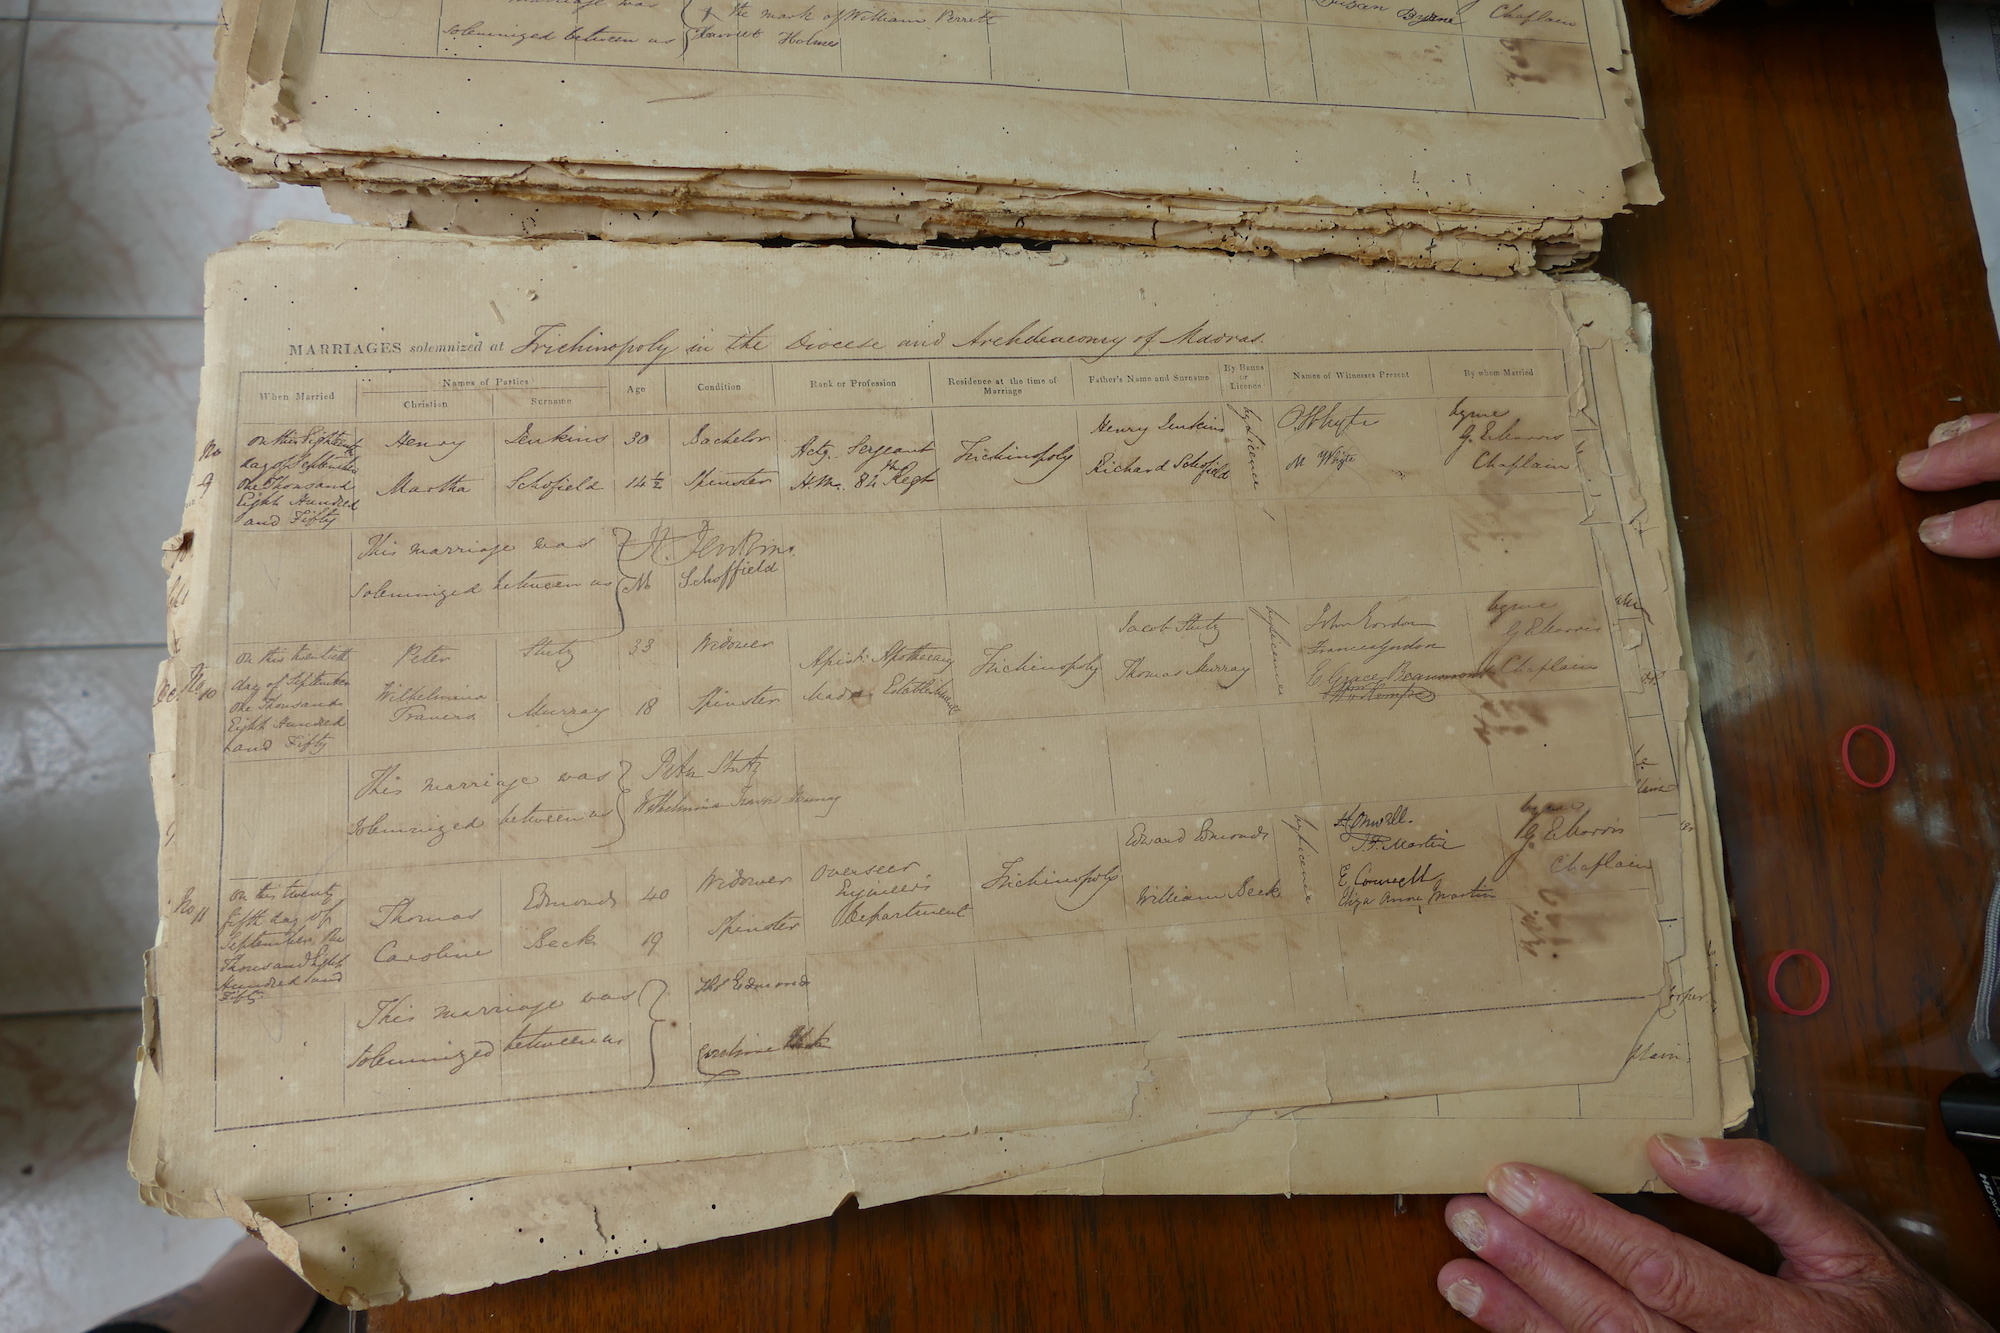 marriage was the mark of William Perrett
solemnized between us Harriet Holmes
Susan Byrne Chaplain
MARRIAGES solemnized at Trichinopoly in the Diocese and Archdeaconry of Madras.
When Married
Names of Parties
Christian Surname
Age
Condition
Rank or Profession
Residence at the time of
Marriage
Father's Name and Surname
By Banns
or
Licence
Names of Witnesses Present
By whom Married
No
9
on this Eighteenth
day of September
One Thousand
Eight Hundred
and Fifty
Henry Jenkins 30 Bachelor
Martha Schofield 14 ½ Spinster
Actg. Sergeant
H.M. 84th Regt
Trichinopoly
Henry Jenkins
Richard Schofield
by Licence
Whyte
M Whyte
by me
G. E. Morris
Chaplain
This marriage was H. Jenkins.
solemnized between us M Schoffield
No
10
on this twentieth
day of September
One Thousand
Eight Hundred
and Fifty
Peter Stutz 33 Widower
Wilhelmina
Murray 18 Spinster
Apothecary
Establishment
Trichinopoly
Jacob Stutz
Thomas Murray
by Licence
John Gordon
E Grace Beaumont
by me
G E Morris
Chaplain
This marriage was Peter Stutz
solemnized between us Wilhelmina Murray
No 11
on this twenty
fifth day of
September One
Thousand Eight
Hundred and
Fifty
Thomas Edmonds 40 Widower
Caroline Beck 19 Spinster
Overseer
Engineer's
Department
Trichinopoly
Edward Edmonds
William Beck
by Licence
J. F. Martin
Eliza Anne Martin
by me
G. E. Morris
Chaplain
This marriage was Thos Edmonds
solemnized between us Caroline Beck